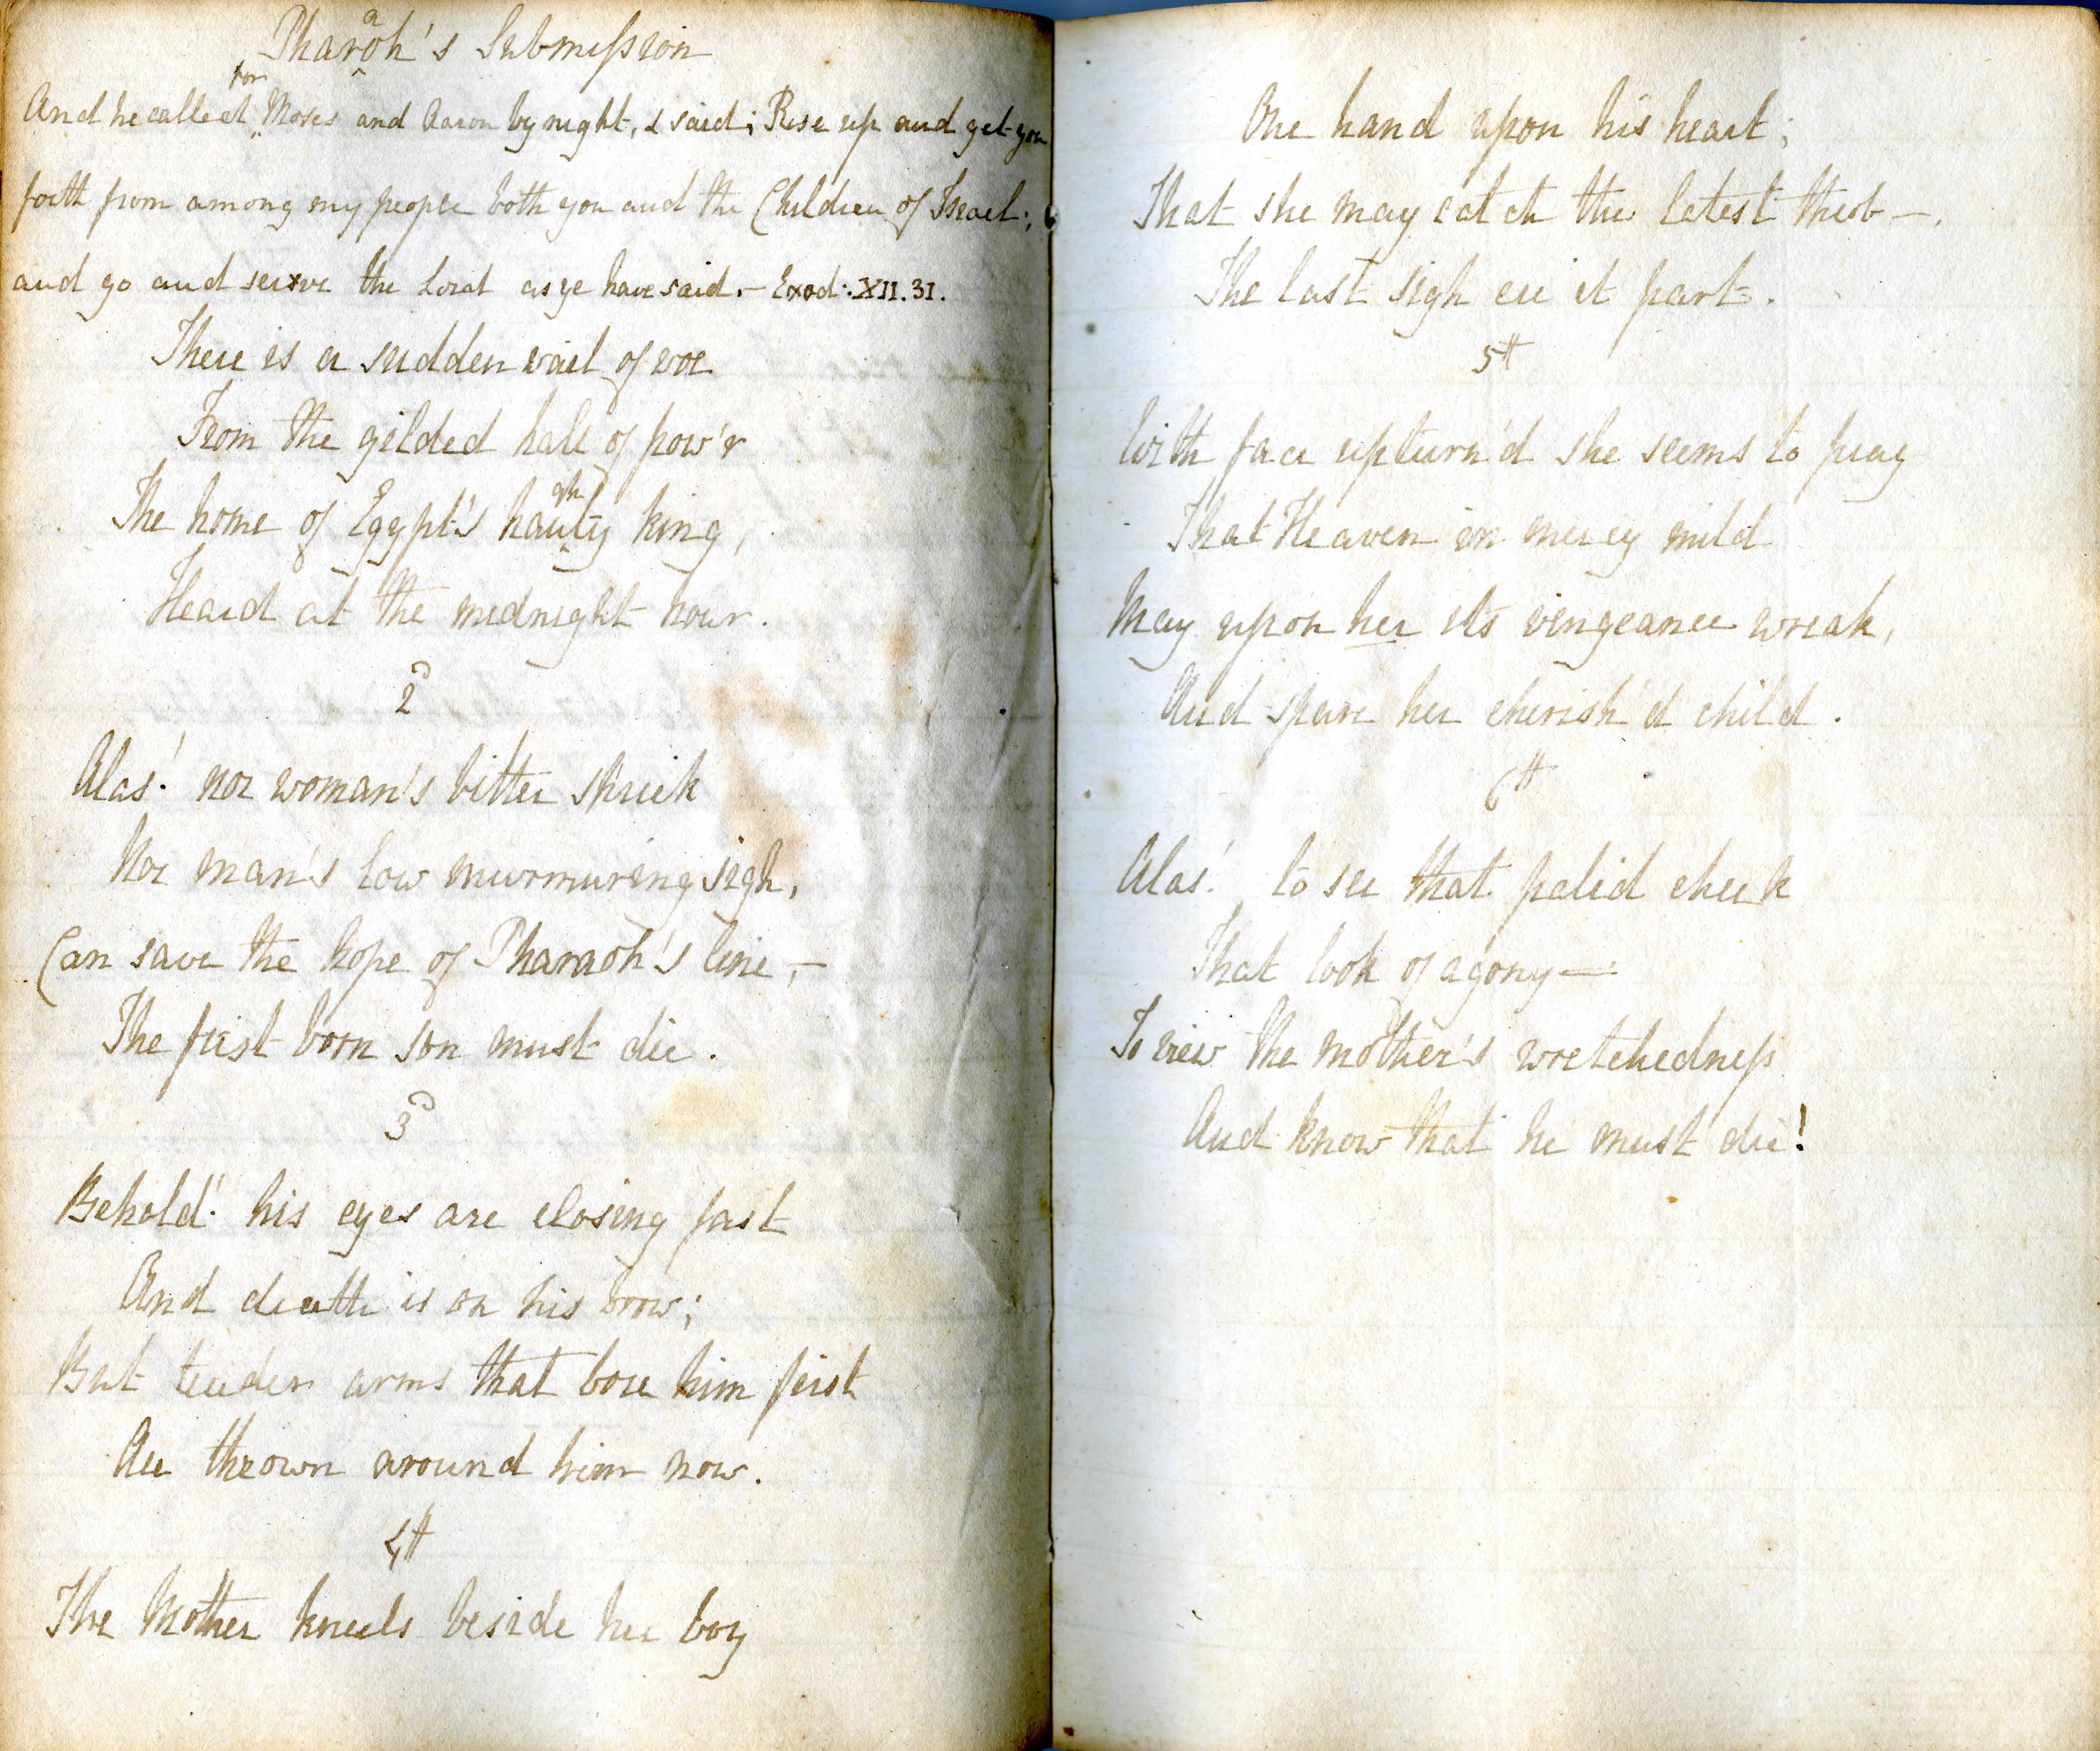 Pharaoh's Submission
And he called for Moses and Aaron by night, & said; Rise up and get you
forth from among my people both you and the Children of Israel;
and go and serve the Lord as ye have said.— Exod: XII. 31.
There is a sudden wail of woe
From the gilded hall of pow'r
The home of Egypt's haughty king,
Heard at the midnight hour.
2d
Alas! nor woman's bitter shriek
Nor man's low murmuring sigh,
Can save the hope of Pharaoh's line,—
The first born son must die.
3d
Behold! his eyes are closing fast
And death is on his brow;
But tender arms that bore him first
Are thrown around him now.
4th
The Mother kneels beside her boy
One hand upon his heart;
That she may catch the latest throb—.
The last sigh ere it part.
5th
With face upturn'd she seems to pray
That Heaven in mercy mild
May upon her its vengeance wreak,
And spare her cherish'd child.
6th
Alas! to see that palid cheek
That look of agony—
To view the mother's wretchedness
And know that he must die!